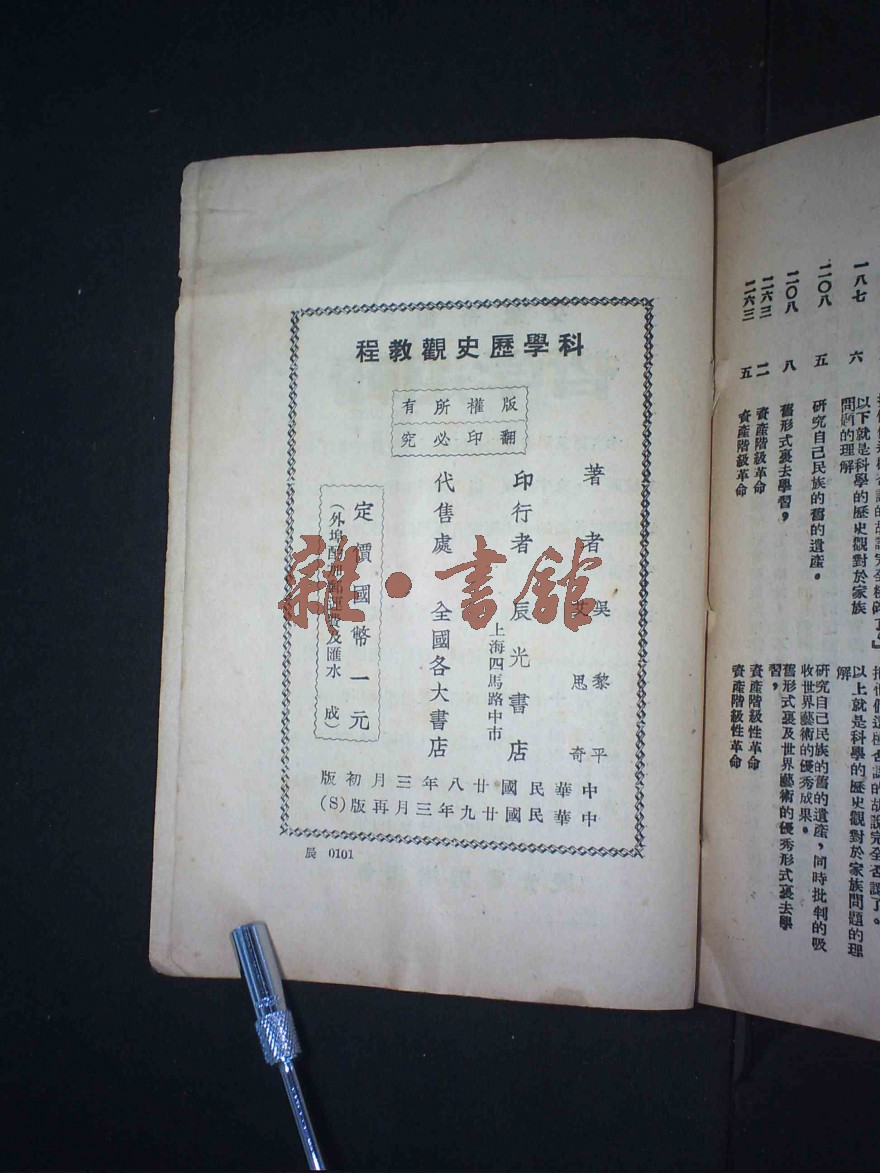 科學歷史觀教程
版權所有
翻印必究
著者 吳黎平
艾思奇
印行者 辰光書店
上海四馬路中市
代售處 全國各大書店
定價國幣一元
(外埠酌加郵運費及匯水 成)
中華民國廿八年三月初版
中華民國廿九年三月再版(S)
辰 0101
雜·書館
一八七 六
以下就是科學的歷史觀對於家族問題的理解
以上就是科學的歷史觀對於家族問題的理解
二〇八 五 研究自己民族的舊的遺產。
研究自己民族的舊的遺產,同時批判的吸收世界藝術的優秀成果。
二〇八 八 舊形式裏去學習,
舊形式裏及世界藝術的優秀形式裏去學習,
二六三 二 資產階級革命
資產階級性革命
二六三 五 資產階級革命
資產階級性革命